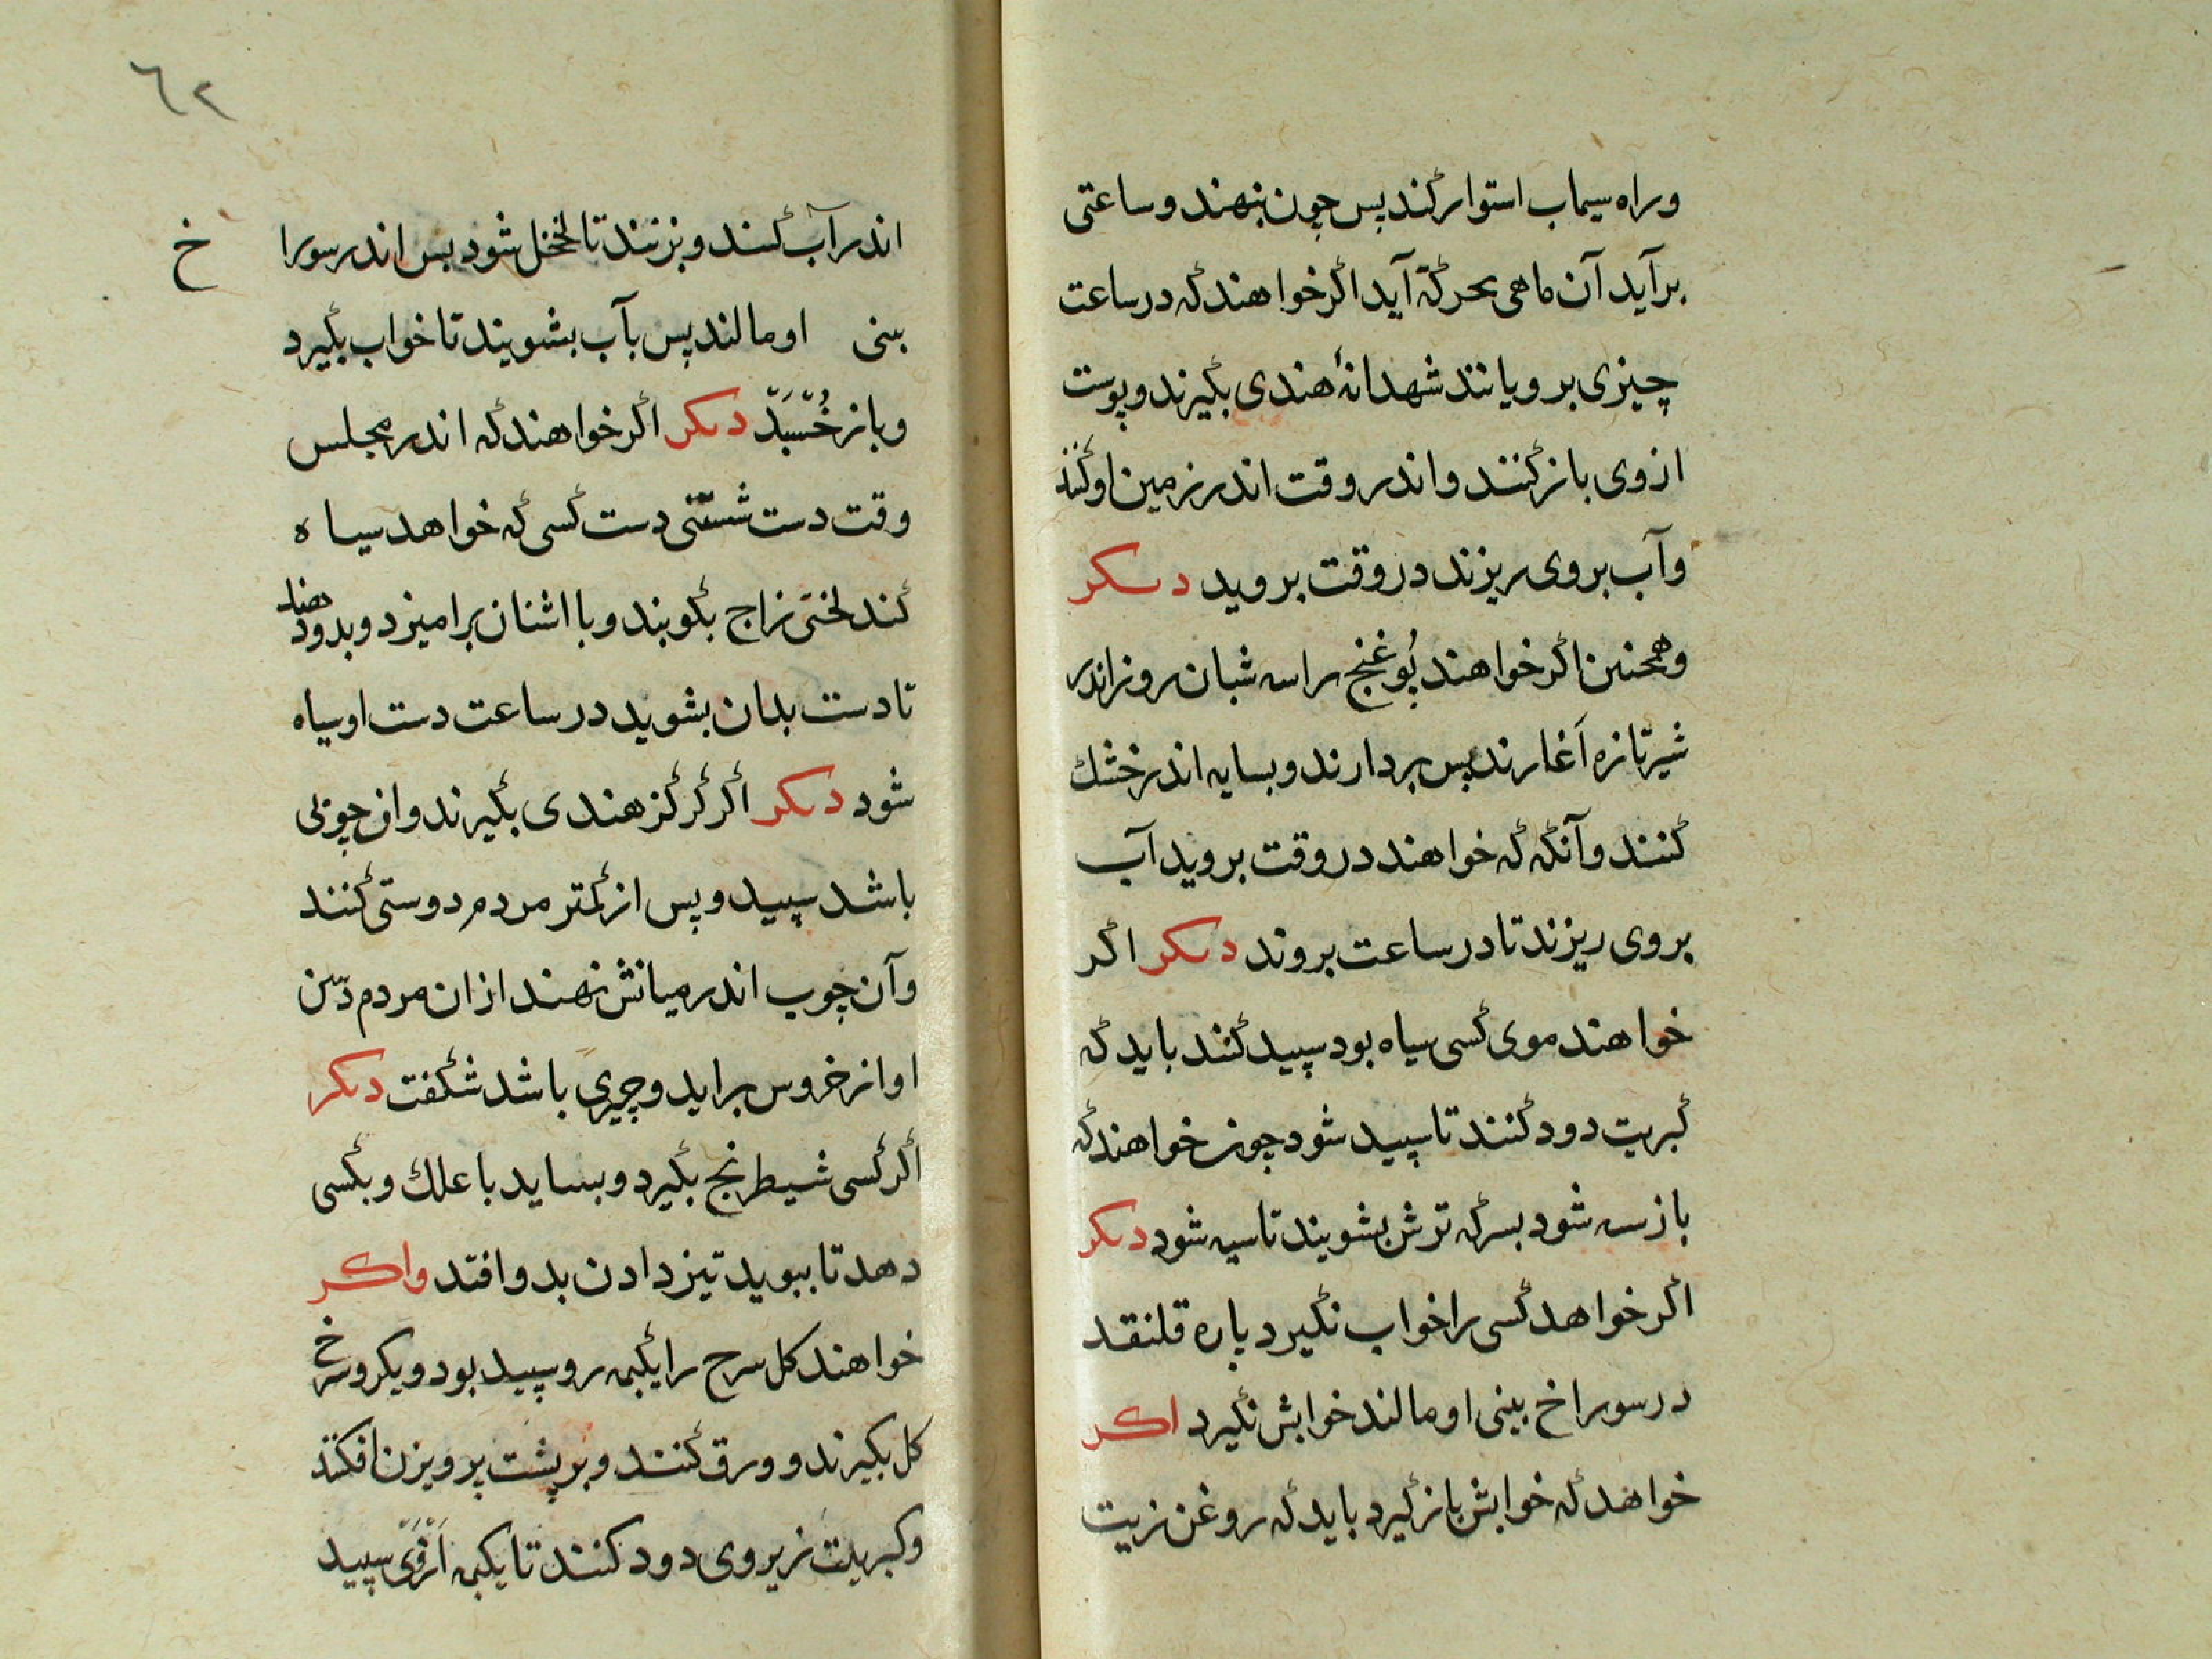 وراه سیماب استوار کند پس چون بنهند و ساعتی
برآید آن ماهی بحرکة آید اکر خواهند که در ساعت
چیزی برویانند شهدانهٔ هندی بکیرند و پوست
ازوی باز کنند و اندر وقت اندر زمین اوکنند
وآب بروی ریزند در وقت بروید دیکر
وهمچنین اکر خواهند بُوغنج را سه شبان روز اندر
شیر تازه آغارند پس بردارند و بسایه اندر خشك
کنند وآنکه که خواهند در وقت بروید آب
بروی ریزند تا در ساعت بروند دیکر اکر
خواهند موی کسی سیاه بود سپید کنند باید که
کبریت دود کنند تا سپید شود چون خواهند که
باز سیه شود بسرکه ترش بشویند تا سیه شود دیکر
اکر خواهد کسی را خواب نکیرد پاره قلنقد
در سوراخ بینی او مالند خوابش نکیرد اکر
خواهد که خوابش باز کیرد باید که روغن زیت
٦٢
اندر آب کنند و بزنند تا لخلخل شود پس اندر سورا خ
بینی او مالند پس بآب بشویند تا خواب بکیرد
وباز خُسْبَدّ دیکر اکر خواهند که اندر مجلس
وقت دست شستنی دست کسی که خواهد سیاه
کند لختی زاج بکوبند و با اشنان برامیزد و بدو دهند
تا دست بدان بشوید در ساعت دست او سیاه
شود دیکر اکر کرکز هندی بکیرند وان چوبی
باشد سپید و پس از کمتر مردم دوستی کنند
وآن چوب اندر میانش نهند ازان مردم دین
اواز خروس براید و چیزی باشد شکفت دیکر
اکر کسی شیطرنج بکیرد و بساید با علك و بکسی
دهد تا ببوید تیز دادن بدو افتد واکر
خواهند کل سرخ را یکنیمه رو سپید بود و یکرو سرخ
کل بکیرند و ورق کنند و بر پشت پرویزن افکنند
وکبریت زیر وی دود کنند تا یکنیمه ازوی سپید